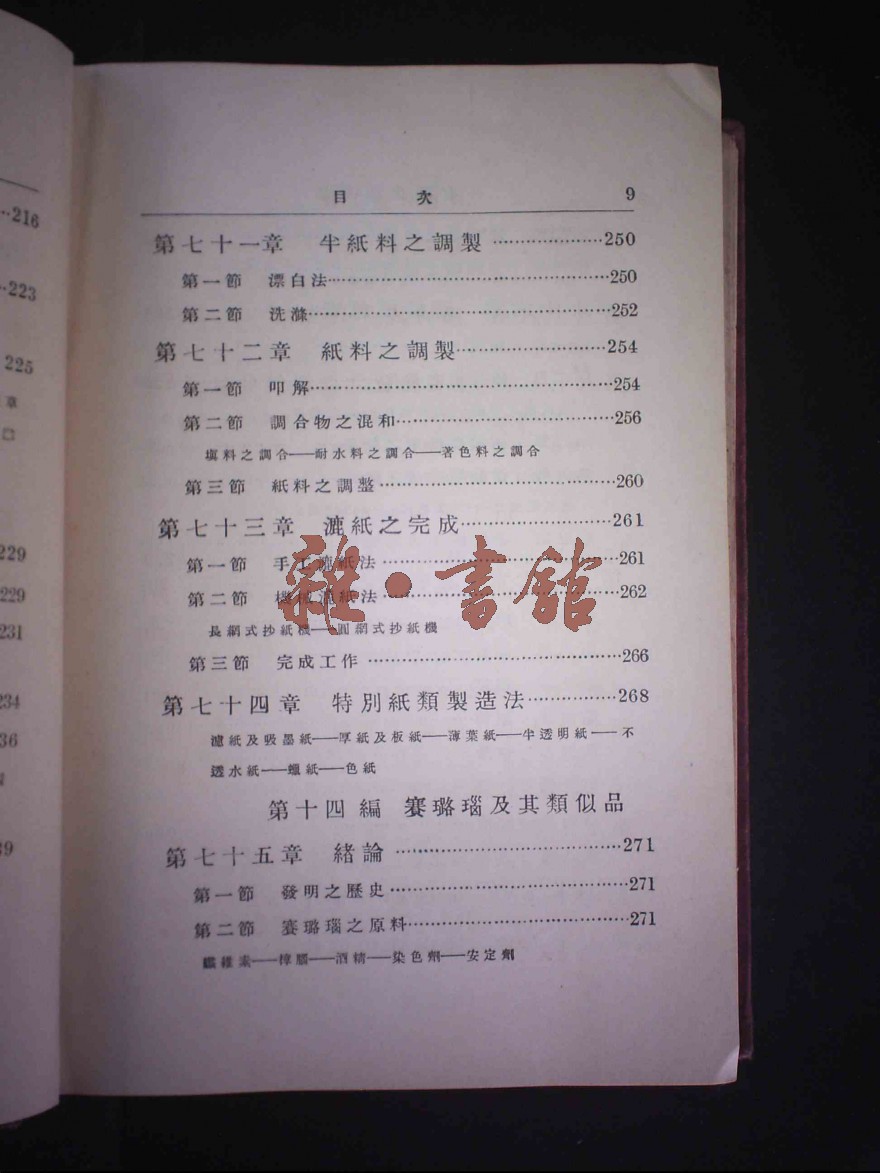 目 次 9
第七十一章 半紙料之調製 …………………250
第一節 漂白法…………………250
第二節 洗滌…………………252
第七十二章 紙料之調製…………………254
第一節 叩解…………………254
第二節 調合物之混和…………………256
塡料之調合——耐水料之調合——著色料之調合
第三節 紙料之調整…………………260
第七十三章 漉紙之完成…………………261
第一節 手工漉紙法…………………261
第二節 機械漉紙法…………………262
長網式抄紙機——圓網式抄紙機
第三節 完成工作…………………266
第七十四章 特別紙類製造法…………………268
濾紙及吸墨紙——厚紙及板紙——薄葉紙——半透明紙——不
透水紙——蠟紙——色紙
第十四編 賽璐瑙及其類似品
第七十五章 緒論…………………271
第一節 發明之歷史…………………271
第二節 賽璐瑙之原料…………………271
纖維素——樟腦——酒精——染色劑——安定劑
雜·書館
…216
…223
225
章
229
229
231
234
36